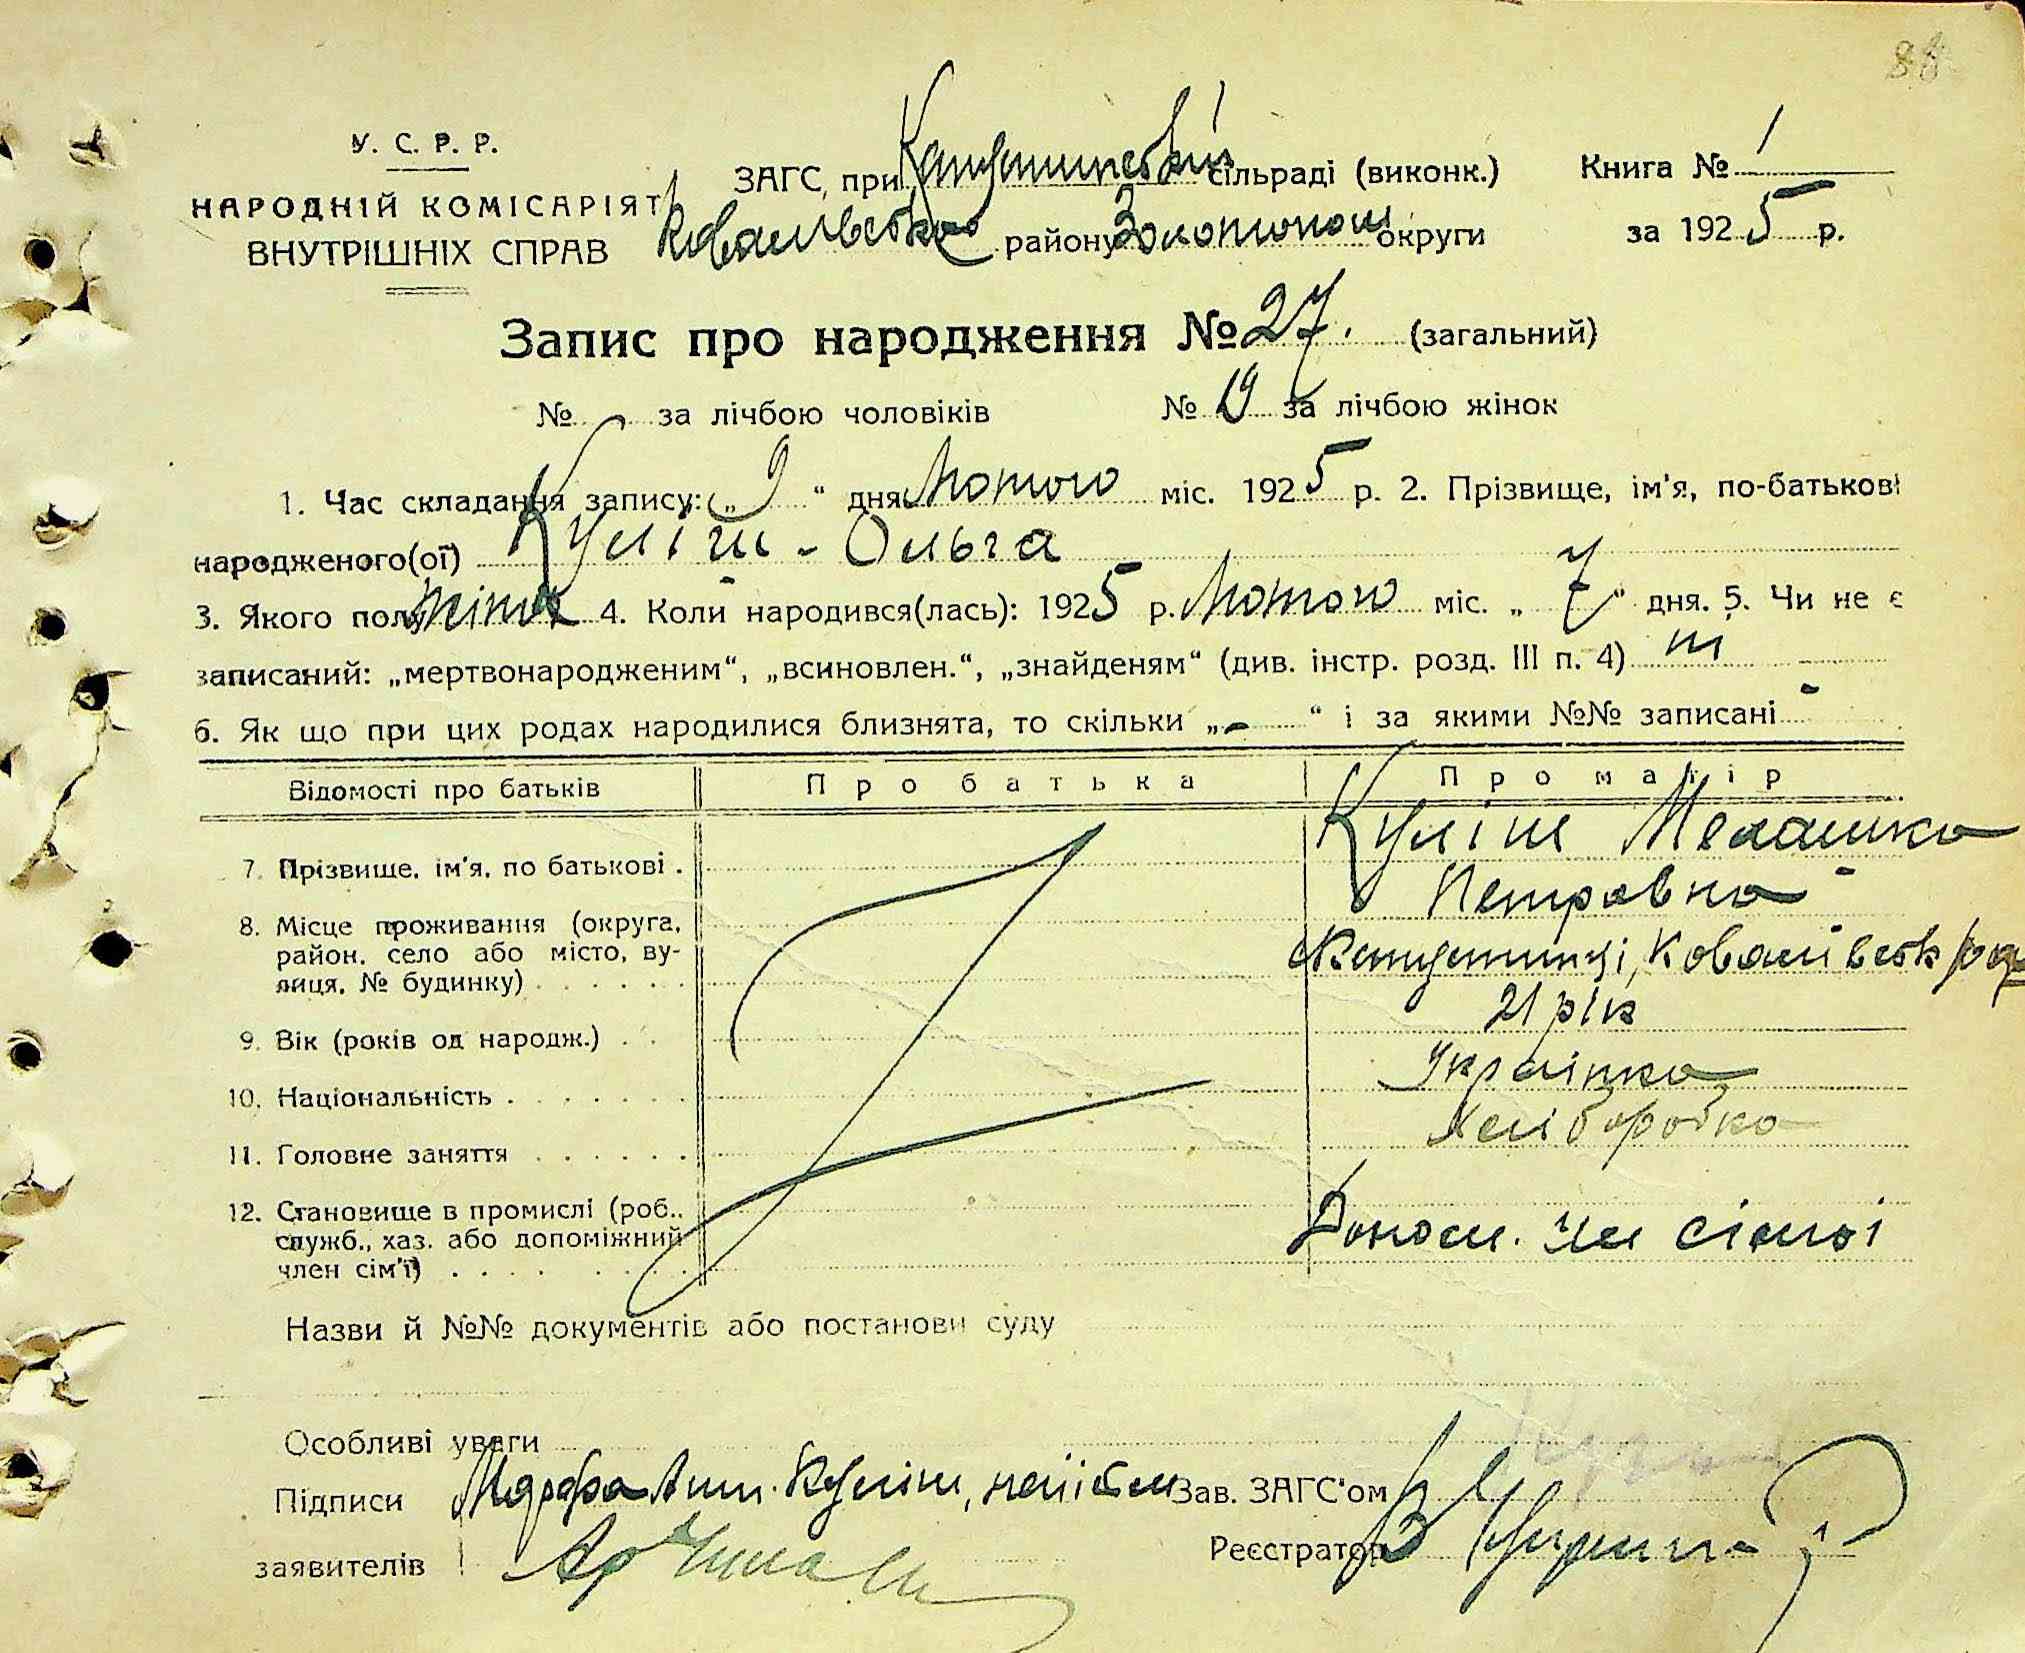 88
У. С. Р. Р.
НАРОДНІЙ КОМІСАРІЯТ
ВНУТРІШНІХ СПРАВ
ЗАГС, при сільраді (виконк.)
району Золотонош округи
Книга № 1
за 1925 р.
Запис про народження № 27. (загальний)
№ за лічбою чоловіків № 19 за лічбою жінок
1. Час складання запису: „ 9 “ дня Лютого міс. 1925 р. 2. Прізвище, ім'я, по-батькові
народженого(ої) Куліш - Ольга
3. Якого полу жіноч 4. Коли народився(лась): 1925 р. Лютого міс. „ 7 “ дня. 5. Чи не є
записаний: „мертвонародженим“, „всиновлен.“, „знайденям“ (див. інстр. розд. III п. 4) ні
6. Як що при цих родах народилися близнята, то скільки „ - “ і за якими №№ записані -
Відомості про батьків Про батька Про матір
7. Прізвище, ім'я, по батькові . Куліш Мелашка
Петровна
8. Місце проживання (округа,
район, село або місто, ву-
лиця, № будинку) . . . . . .
9. Вік (років од народж.) . . 21 рік
10. Національність . . . . . . . Українка
11. Головне заняття . . . . . . Хліборобка
12. Становище в промислі (роб.,
служб., хаз. або допоміжний
член сім'ї) . . . . Допом. чл сімї
Назви й №№ документів або постанови суду
Особливі уваги
Підписи Куліш, Зав. ЗАГС'ом
заявителів Реєстратор